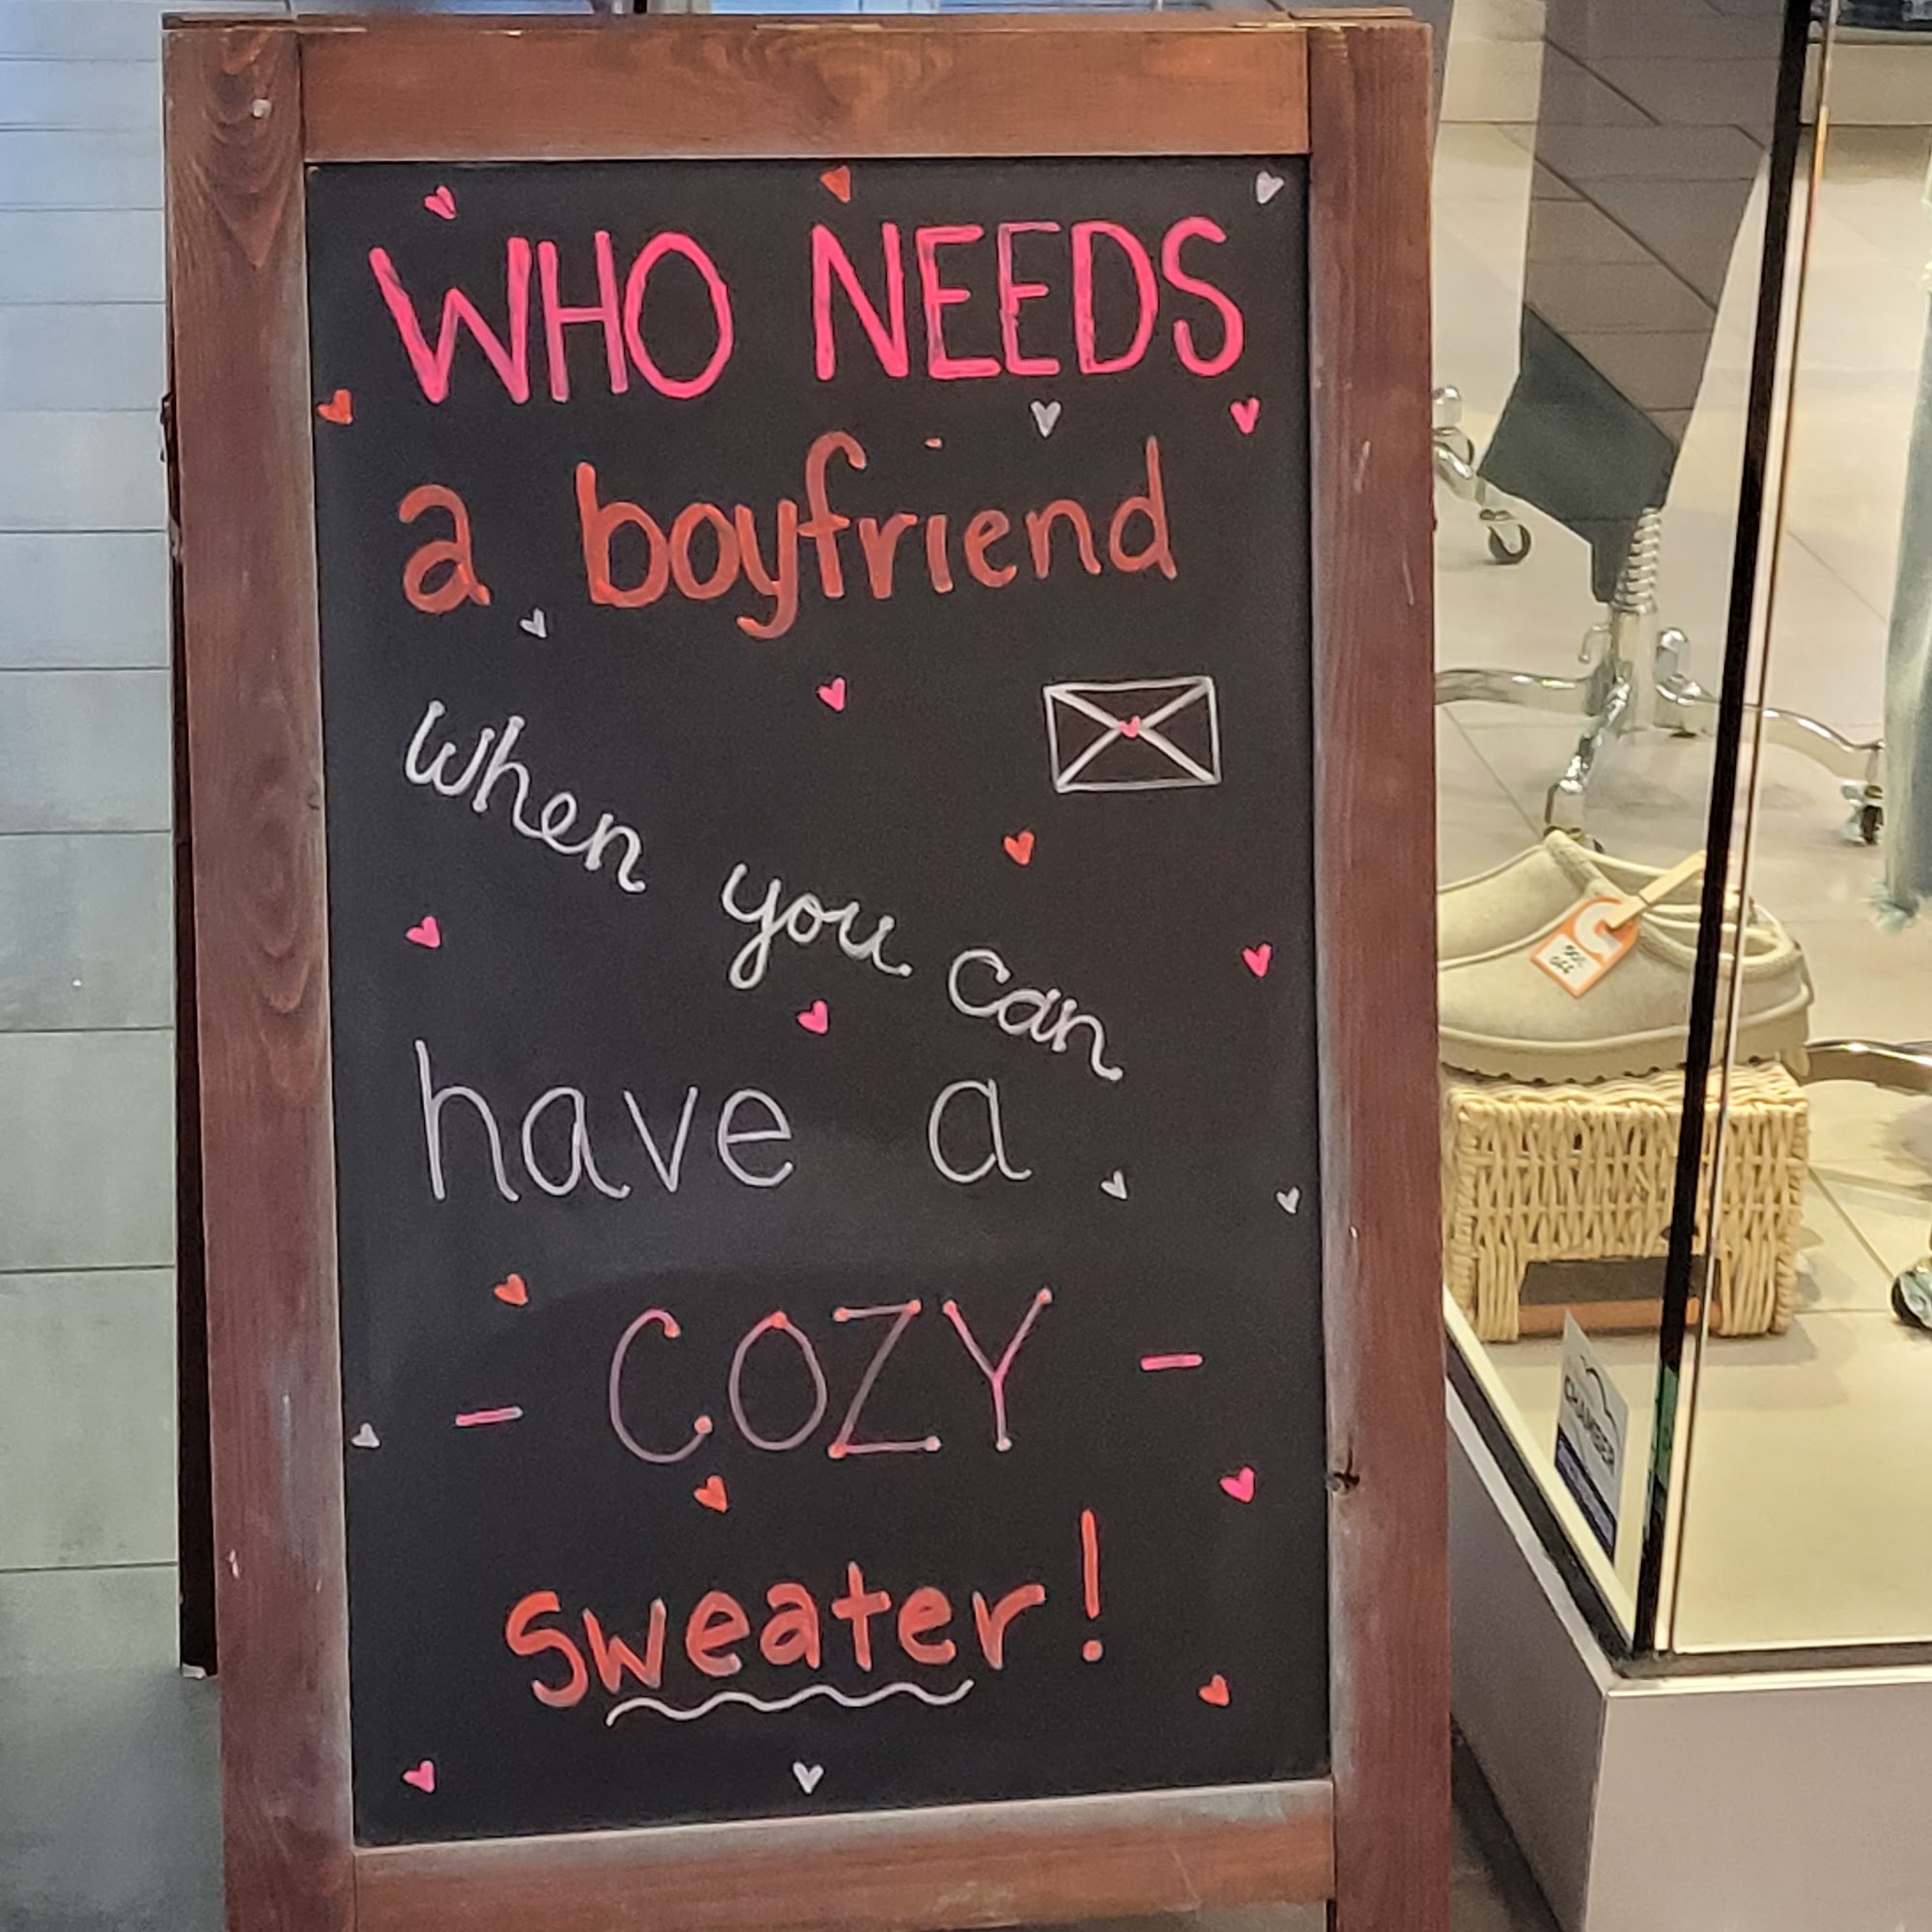 WHO NEEDS
a boyfriend
when you can
have a
- COZY -
sweater!
CHAMBER